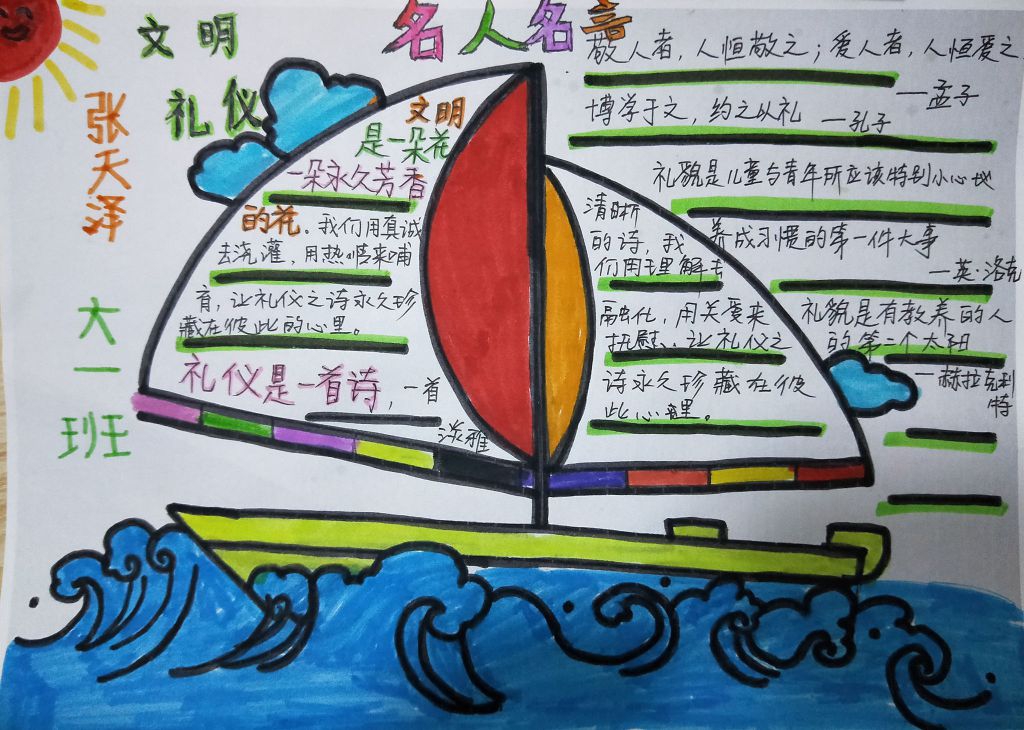 文明
礼仪
张天泽
大一班
名人名言
文明
是一朵花
一朵永久芳香
的花. 我们用真诚
去浇灌，用热情来哺
育，让礼仪之诗永久珍
藏在彼此的心里。
礼仪是一首诗，一首
淡雅
清晰
的诗，我
们用理解去
融化，用关爱来
抚慰，让礼仪之
诗永久珍藏在彼
此心里。
敬人者，人恒敬之；爱人者，人恒爱之
—孟子
博学于文，约之以礼 —孔子
礼貌是儿童与青年所应该特别小心地
养成习惯的第一件大事
—英·洛克
礼貌是有教养的人
的第二个太阳
—赫拉克利
特